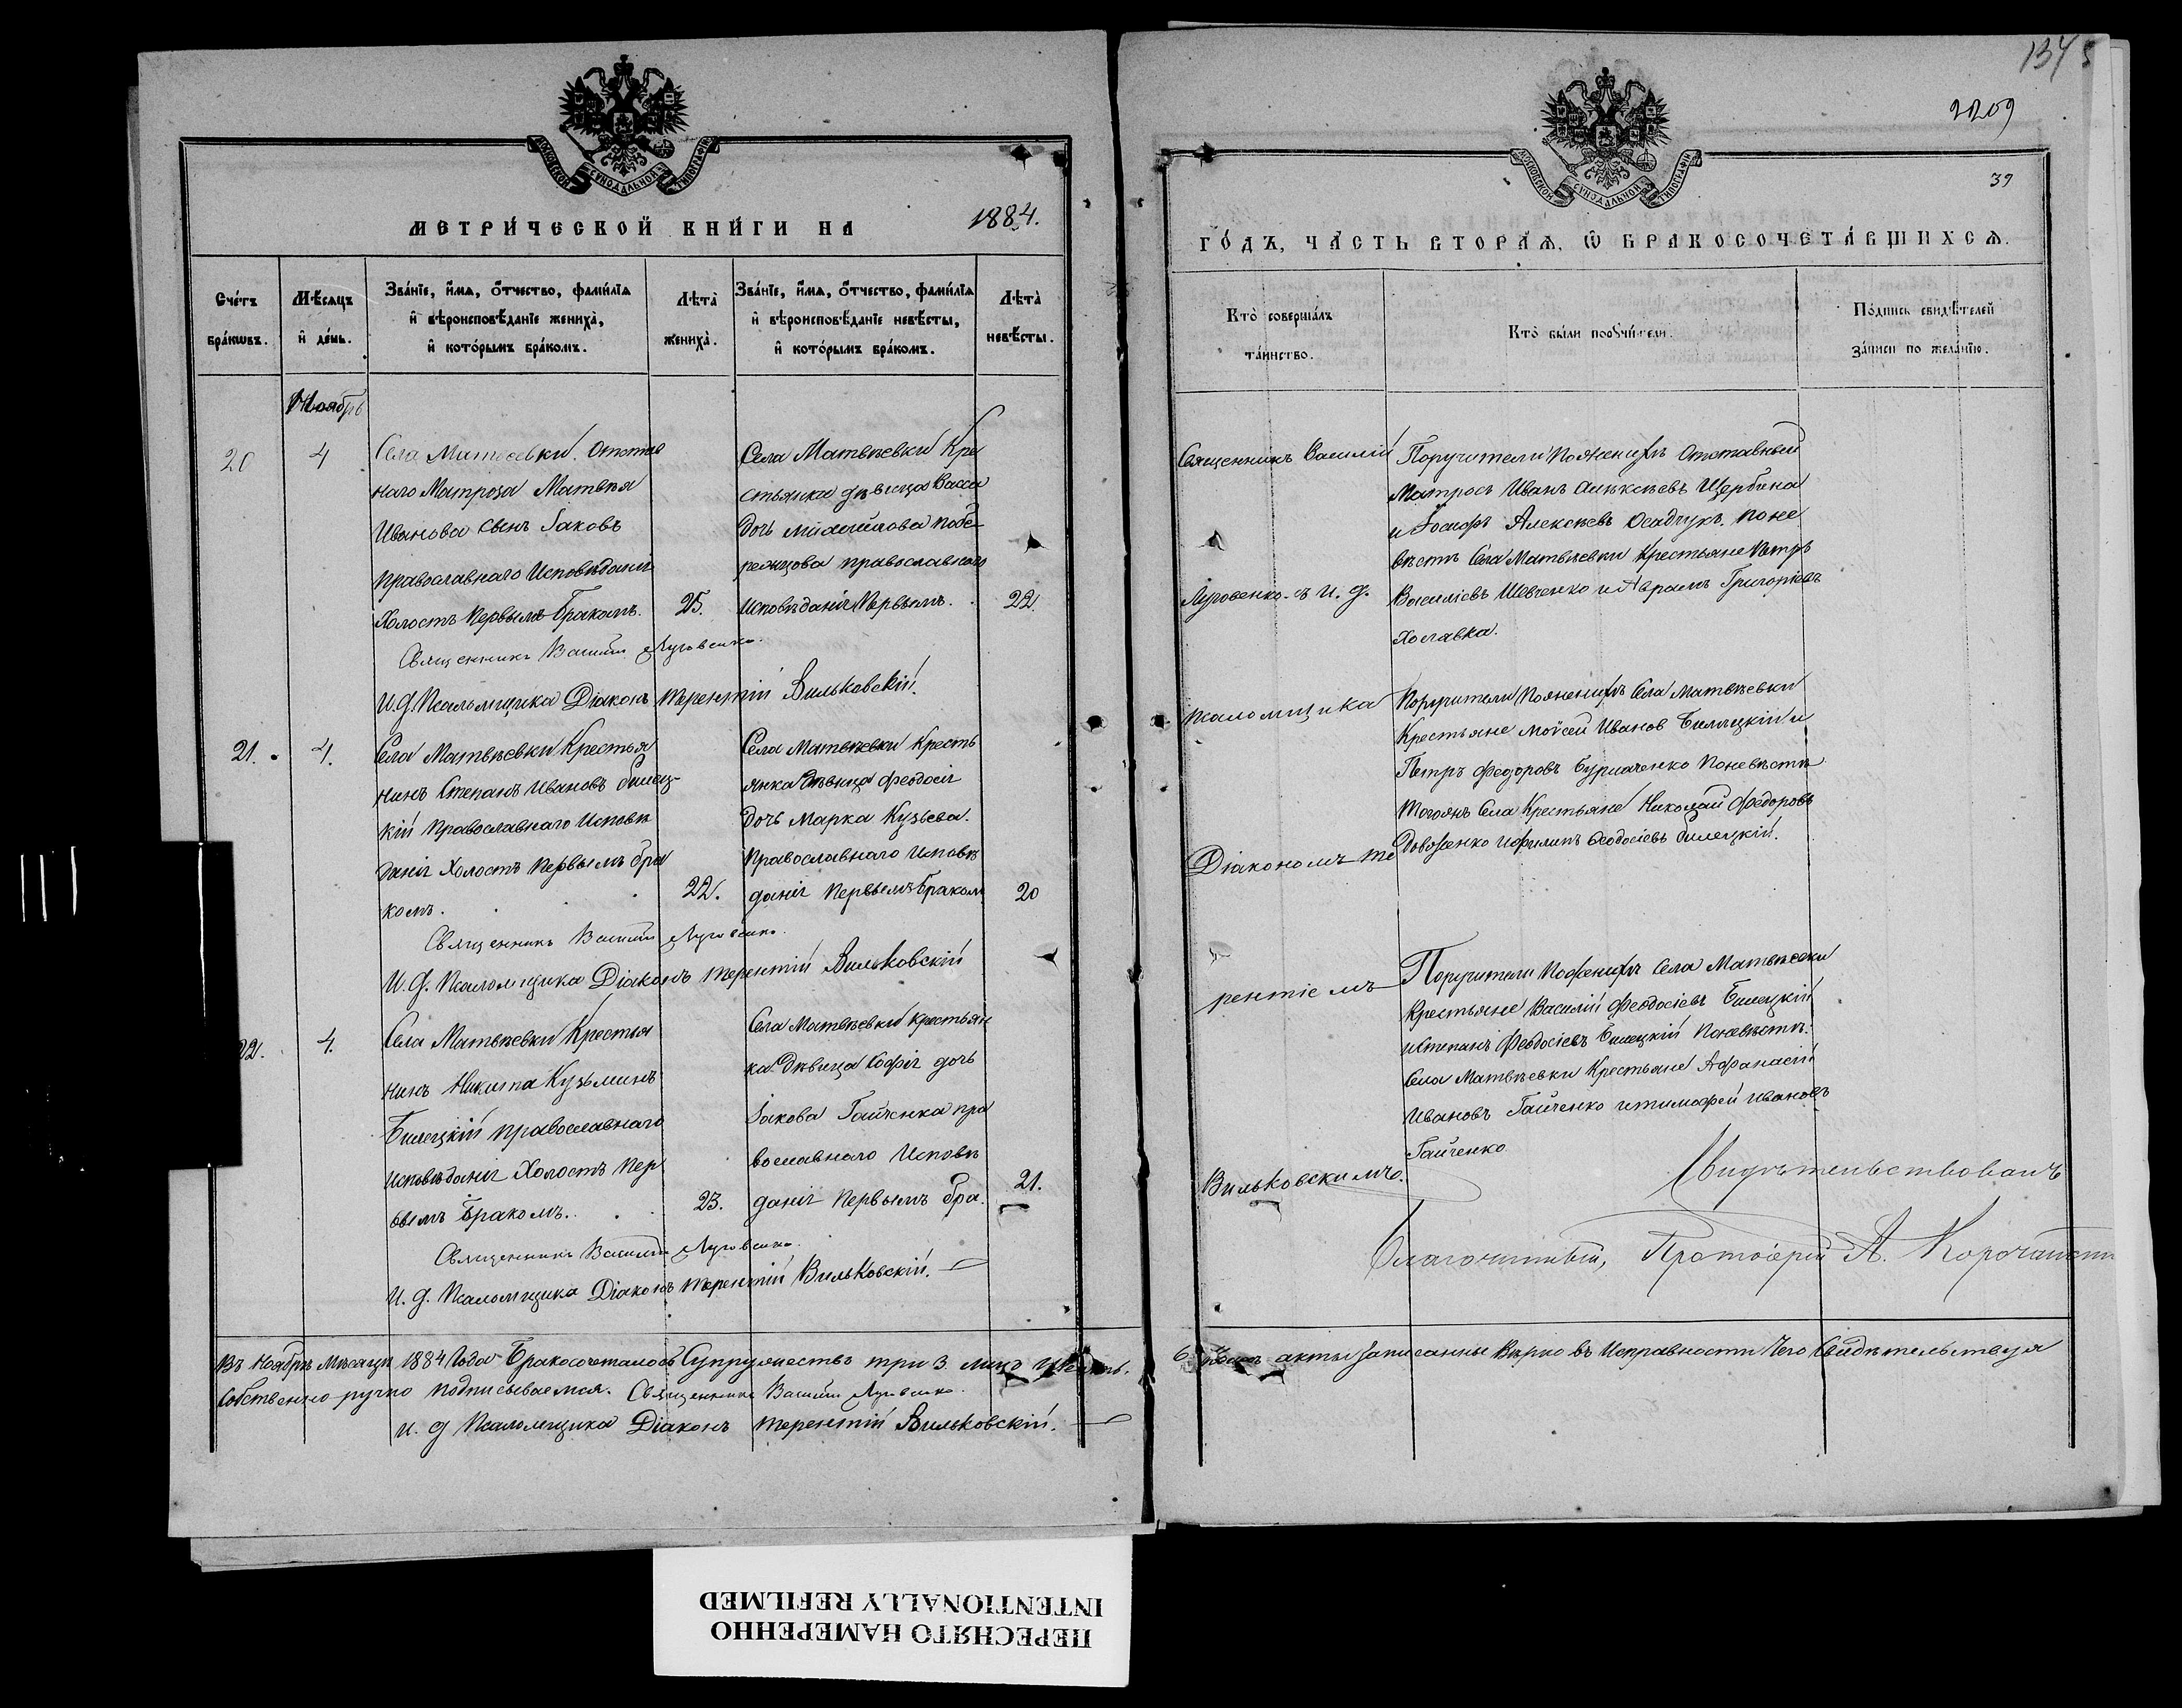 МЕТРИ́ЧЕСКОЙ КНИ́ГИ НА 1884.
Сче́тъ бра́кѡвъ.
Мѣ́сяцъ и҆ де́нь.
Зва́нїе, и҆́мѧ, ѻ҆́тчество, фами́лїѧ
и҆ вѣроисповѣ́данїе жениха̀,
и҆ кото́рымъ бра́комъ.
Лѣта̀ жениха̀.
Зва́нїе, и҆́мѧ, ѻ҆́тчество, фами́лїѧ
и҆ вѣроисповѣ́данїе невѣ́сты,
и҆ кото́рымъ бра́комъ.
Лѣта̀ невѣ́сты.
Ноябрь
20
4
Села Матвѣевки Отстав
наго Матроза Матвѣя
Иванова сынъ Іаковъ
православнаго Исповѣданія
Холостъ Первымъ Бракомъ.
25.
Села Матвѣевки Кре
стьянка дѣвица Васса
дочь Михайлова побе
режцова православнаго
исповѣданія Первымъ.
22.
Священникъ Василій Луговенко.
И. д. Псаломщика Діаконъ Терентій Вильковскій.
21.
4.
Села Матвѣевки Крестья
нинъ Степанъ Ивановъ билец
кій Православнаго Исповѣ
данія Холостъ Первымъ бра
комъ.
22.
Села Матвѣевки Кресть
янка Дѣвица Феодосія
дочь Марка Кузьева.
Православнаго Исповѣ
данія Первымъ Браком
20
Священникъ Василій Луговенко.
И. д. Псаломщика Діаконъ Терентій Вильковскій
22.
4.
Села Матвѣевки Крестья
нинъ Никита Кузьминъ
Билецкій православнаго
исповѣданія Холостъ Пер
вымъ Бракомъ.
23.
Села Матвѣевки крестьян
ка Дѣвица Софія дочь
Іакова Гайченка пра
вославнаго Исповѣ
данія Первымъ бра.
21.
Священникъ Василій Луговенко.
И. д. Псаломщика Діаконъ Терентій Вильковскій.
Въ Ноябрѣ Мѣсяцѣ 1884 Года Бракосочеталось Супружествъ три 3.
Собственно ручно подписываемся. Священникъ Василій Луговенко.
и. д Псаломщика Діаконъ Терентій Вильковскій.
1375
2209
39
ГО́ДЪ, ЧА́СТЬ ВТОРА́Ѧ, Ѽ БРАКОСОЧЕТА́ВШИХСѦ.
Кто̀ соверша́лъ
та́инство.
Кто̀ бы́ли поручи́тели.
По́дпись свидѣ́телей
за́писи по жела́нїю.
Священникъ Василій
Луговенко съ И. д.
псаломщика
Діакономъ Те
рентіемъ
Вильковскимъ.
Поручители по Женихѣ Отставный
Матросъ Иванъ Алѣксѣевъ Щербина
и Іосифъ Алексѣевъ Осадчукъ, по не
вѣстѣ Села Матвѣевки Крестьяне Петръ
Василіевъ Шевченко и Аврамъ Григоріевъ
Халавка.
Поручители По женихѣ Села Матвѣевки
Крестьяне Мойсей Иванов Билецкій и
Петръ Феодоровъ Бурлаченко По невѣстѣ
Тогожъ Села Крестьяне Николай Федоровъ
Довженко и Филипъ Феодосіевъ билецкій.
Поручители По женихѣ Села Матвѣевки
Крестьяне Василій Феодосіевъ Билецкій
и Степанъ Феодосіевъ Билецкій По невѣстѣ:
Села Матвѣевки Крестьяне Афанасій
Ивановъ Гайченко и тимофей ивановъ
Гайченко
Свидѣтельствовалъ
Благочинный, Протоіерей А.
акты Записанные Вѣрно въ Исправности Чего Свидѣтельствуя
ПЕРЕСНЯТО НАМЕРЕННО
INTENTIONALLY REFILMED